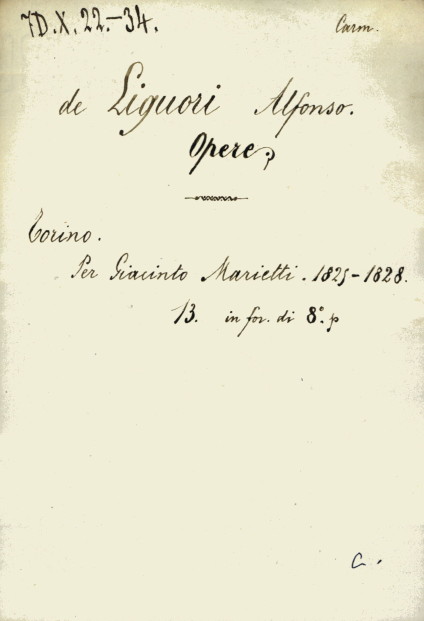 7D.X.22.-34.
Carm.
de Liguori Alfonso.
Opere
Torino.
Per Giacinto Marietti. 1825-1828.
13. in for. di 8.° p
C.